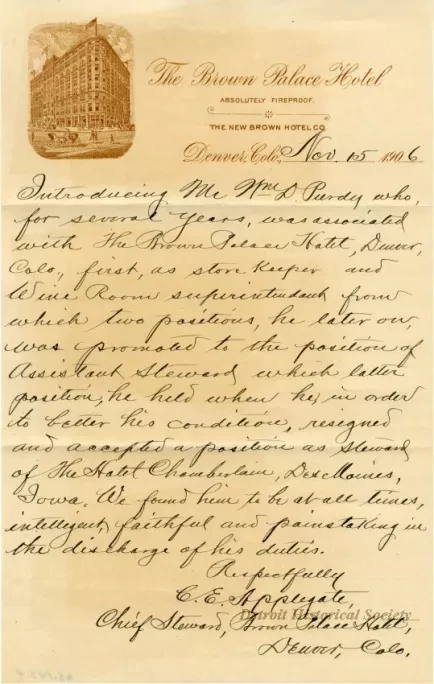 The Brown Palace Hotel
ABSOLUTELY FIREPROOF.
THE NEW BROWN HOTEL CO.
Denver, Colo., Nov. 15 1906
Introducing Mr Wm D. Purdy who,
for several years, was associated
with The Brown Palace Hotel, Denver,
Colo., first, as store keeper and
Wine Room superintendant, from
which two positions, he later on,
was promoted to the position of
Assistant Steward, which latter
position, he held when he, in order
to better his condition, resigned
and accepted a position as steward
of The Hotel Chamberlain, Des Moines,
Iowa. We found him to be at all times,
intelligent, faithful and painstaking in
the discharge of his duties.
Respectfully
C. E. Applegate,
Detroit Historical Society
Chief Steward, Brown Palace Hotel,
Denver, Colo.